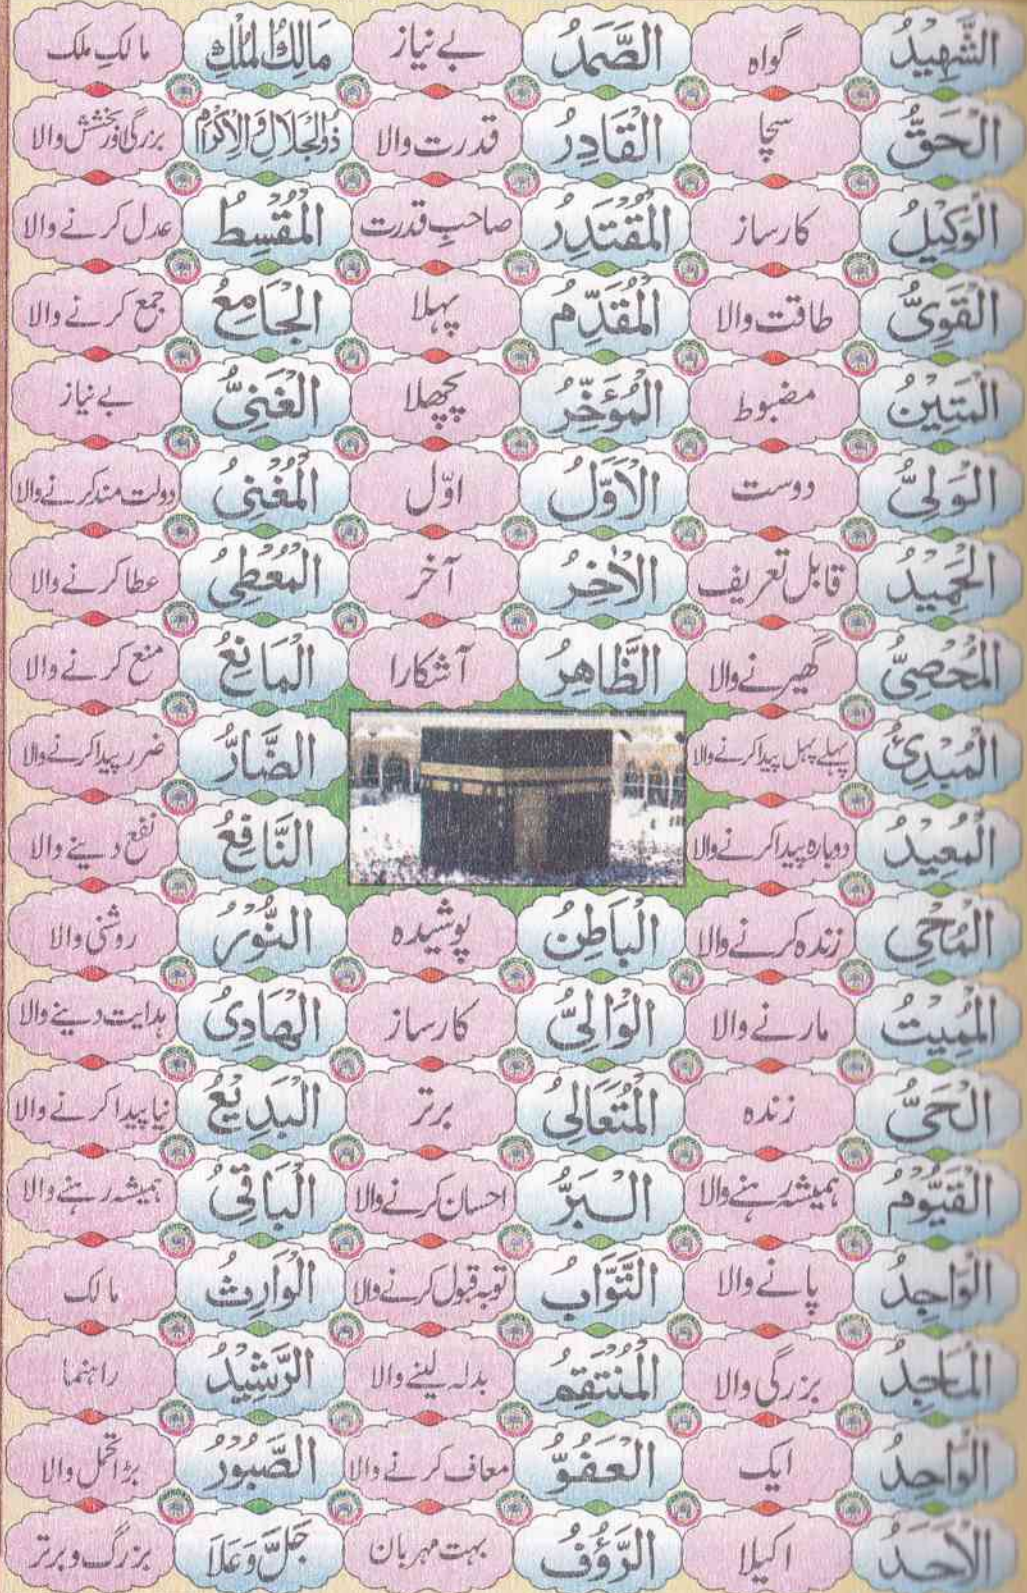 الشَّهِيْدُ گواہ الصَّمَدُ بے نیاز مَالِكُ الْمُلْكِ مالکِ ملک
الْحَقُّ سچا الْقَادِرُ قدرت والا ذُوالْجَلَالِ وَالْاِكْرَامِ بزرگی اور بخشش والا
الْوَكِيْلُ کارساز الْمُقْتَدِرُ صاحبِ قدرت الْمُقْسِطُ عدل کرنے والا
الْقَوِيُّ طاقت والا الْمُقَدِّمُ پہلا الْجَامِعُ جمع کرنے والا
الْمَتِيْنُ مضبوط الْمُؤَخِّرُ پچھلا الْغَنِيُّ بے نیاز
الْوَلِيُّ دوست الْاَوَّلُ اوّل الْمُغْنِيُ دولت مند کرنے والا
الْحَمِيْدُ قابل تعریف الْاٰخِرُ آخر الْمُعْطِيُ عطا کرنے والا
الْمُحْصِيُّ گھیرنے والا الظَّاهِرُ آشکارا الْمَانِعُ منع کرنے والا
الْمُبْدِئُ پہلے پہل پیدا کرنے والا الضَّارُّ ضرر پیدا کرنے والا
الْمُعِيْدُ دوبارہ پیدا کرنے والا النَّافِعُ نفع دینے والا
الْمُحْيِ زندہ کرنے والا الْبَاطِنُ پوشیدہ النُّوْرُ روشنی والا
الْمُمِيْتُ مارنے والا الْوَالِيُّ کارساز الْهَادِيُ ہدایت دینے والا
الْحَيُّ زندہ الْمُتَعَالِيُ برتر الْبَدِيْعُ نیا پیدا کرنے والا
الْقَيُّوْمُ ہمیشہ رہنے والا الْبَرُّ احسان کرنے والا الْبَاقِيُ ہمیشہ رہنے والا
الْوَاجِدُ پانے والا التَّوَّابُ توبہ قبول کرنے والا الْوَارِثُ مالک
الْمَاجِدُ بزرگی والا الْمُنْتَقِمُ بدلہ لینے والا الرَّشِيْدُ راہنما
الْوَاحِدُ ایک الْعَفُوُّ معاف کرنے والا الصَّبُوْرُ بڑا تحمل والا
الْاَحَدُ اکیلا الرَّؤُفُ بہت مہربان جَلَّ وَعَلَا بزرگ و برتر